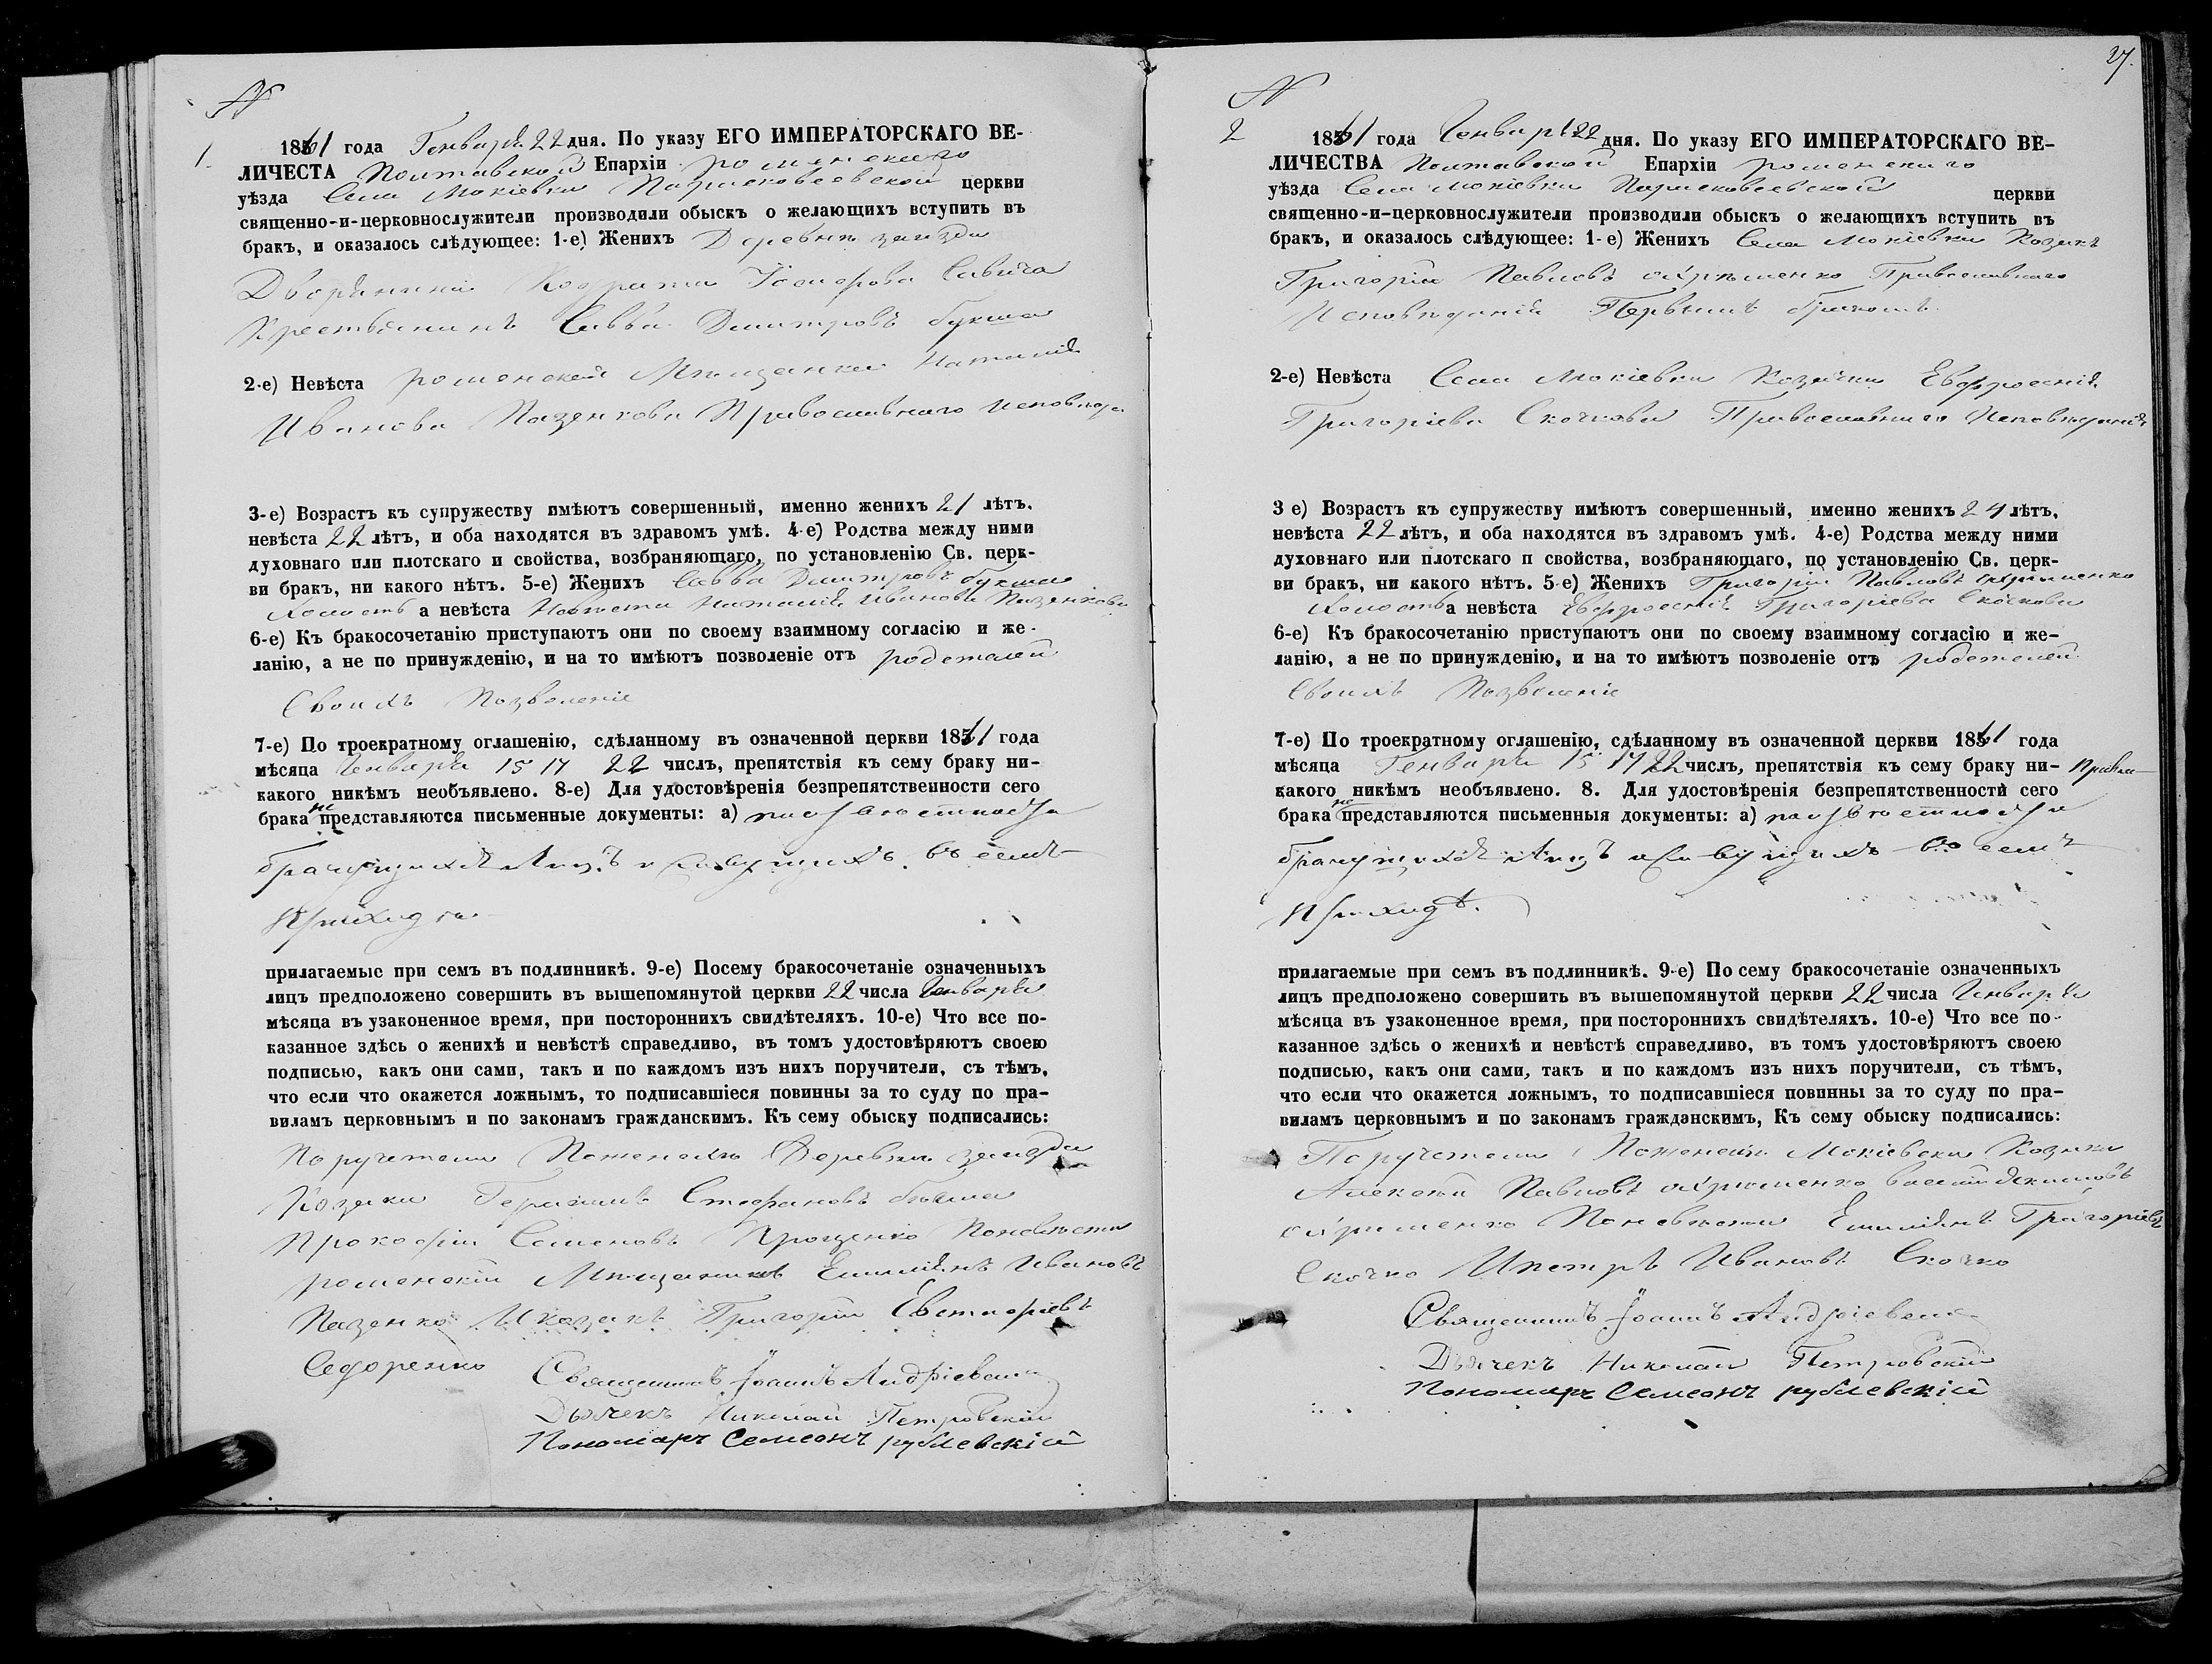 №
1.
1861 года Генваря 22 дня. По указу ЕГО ИМПЕРАТОРСКАГО ВЕ-
ЛИЧЕСТА Полтавской Епархіи роменскаго
уѣзда Села Мокіевки Параскевіевской церкви
священно-и-церковнослужители производили обыскъ о желающихъ вступить въ
бракъ, и оказалось слѣдующее: 1-е) Женихъ Деревни
Дворянина Савича
Крестьянинъ Савва Дмитровъ букша
2-е) Невѣста роменская Мѣщанка Наталія
Иванова Пазенкова Православнаго
3-е) Возрастъ къ супружеству имѣютъ совершенный, именно женихъ 21 лѣтъ.
невѣста 22 лѣтъ, и оба находятся въ здравомъ умѣ. 4-е) Родства между ними
духовнаго или плотскаго и свойства, возбраняющаго, по установленію Св. церк-
ви бракъ, ни какого нѣтъ. 5-е) Женихъ Савва Дмитровъ букша
Холостъ а невѣста Наталія Иванова Пазенкова
6-е) Къ бракосочетанію приступаютъ они по своему взаимному согласію и же-
ланію, а не по принужденію, и на то имѣютъ позволеніе отъ родетелей
Своихъ Позволеніе
7-е) По троекратному оглашенію, сдѣланному въ означенной церкви 1861 года
мѣсяца Генваря 15 17 22 числъ, препятствія къ сему браку ни-
какого никѣмъ необъявлено. 8-е) Для удостовѣренія безпрепятственности сего
брака не представляются письменные документы: а) по извѣстности
брачущихся лицъ въ семъ
приходѣ
прилагаемые при семъ въ подлинникѣ. 9-е) Посему бракосочетаніе означенныхъ
лицъ предположено совершить въ вышепомянутой церкви 22 числа Генваря
мѣсяца въ узаконенное время, при постороннихъ свидѣтеляхъ. 10-е) Что все по-
казанное здѣсь о женихѣ и невѣстѣ справедливо, въ томъ удостовѣряютъ своею
подписью, какъ они сами, такъ и по каждомъ изъ нихъ поручители, съ тѣмъ,
что если что окажется ложнымъ, то подписавшіеся повинны за то суду по пра-
виламъ церковнымъ и по законамъ гражданскимъ. Къ сему обыску подписались:
Поручетели Поженихѣ Деревни
Козаки Герасимъ Стефановъ
Прокофій Семеновъ Проценко Поневѣсти
роменскій Мѣщанинъ Емиліянъ Ивановъ
Пазенко И козакъ Григорій Евстафіевъ
Седоренко
Священникъ Іоаннъ Андріевскій
Дьячекъ Николай Петровскій
Пономарь Семеонъ рублевскій
27.
№
2
1861 года Генваря 22 дня. По указу ЕГО ИМПЕРАТОРСКАГО ВЕ-
ЛИЧЕСТВА Полтавской Епархіи роменскаго
уѣзда Села Мокіевки Параскевіевской церкви
священно-и-церковнослужители производили обыскъ о желающихъ вступить въ
бракъ, и оказалось слѣдующее: 1-е) Женихъ Села Мокіевки Козакъ
Григорій Павловъ Охрѣменко Православнаго
Исповѣданія Первымъ бракомъ
2-е) Невѣста Села Мокіевки Козачка Евфросинія
Григоріева Скочкова Православнаго Исповѣданія
3 е) Возрастъ къ супружеству имѣютъ совершенный, именно женихъ 24 лѣтъ,
невѣста 22 лѣтъ, и оба находятся въ здравомъ умѣ. 4-е) Родства между ними
духовнаго или плотскаго п свойства, возбраняющаго, по установленію Св. церк-
ви бракъ, ни какого нѣтъ. 5-е) Женихъ Григорій Павловъ Охрѣменко
Холостъ а невѣста Евфросинія Григоріева Скочкова
6-е) Къ бракосочетанію приступаютъ они по своему взаимному согласію и же-
ланію, а не по принужденію, и на то имѣютъ позволеніе отъ родетелей
Своихъ Позволеніе
7-е) По троекратному оглашенію, сдѣланному въ означенной церкви 1861 года
мѣсяца Генваря 15 17 22 числъ, препятствія къ сему браку ни-
какого никѣмъ необъявлено. 8. Для удостовѣренія безпрепятственности сего
брака не представляются письменныя документы: а) по извѣстности
брачущихся лицъ въ семъ
приходѣ.
прилагаемые при семъ въ подлинникѣ. 9-е) По сему бракосочетаніе означенныхъ
лицъ предположено совершить въ вышепомянутой церкви 22 числа Генваря
мѣсяца въ узаконенное время, при постороннихъ свидѣтеляхъ. 10-е) Что все по-
казанное здѣсь о женихѣ и невѣстѣ справедливо, въ томъ удостовѣряютъ своею
подписью, какъ они сами, такъ и по каждомъ изъ нихъ поручители, съ тѣмъ,
что если что окажется ложнымъ, то подписавшіеся повинны за то суду по пра-
виламъ церковнымъ и по законамъ гражданскимъ, Къ сему обыску подписались:
Поручетели Поженихѣ Мокіевски Козаки
Алексѣй Павловъ Охрѣменко
Охрѣменко Поневѣсти Емиліянъ Григоріевъ
Скочко Ипетръ Ивановъ Скочко
Священникъ Іоаннъ Андріевскій
Дьячекъ Николай Петровскій
Пономарь Семеонъ рублевскій